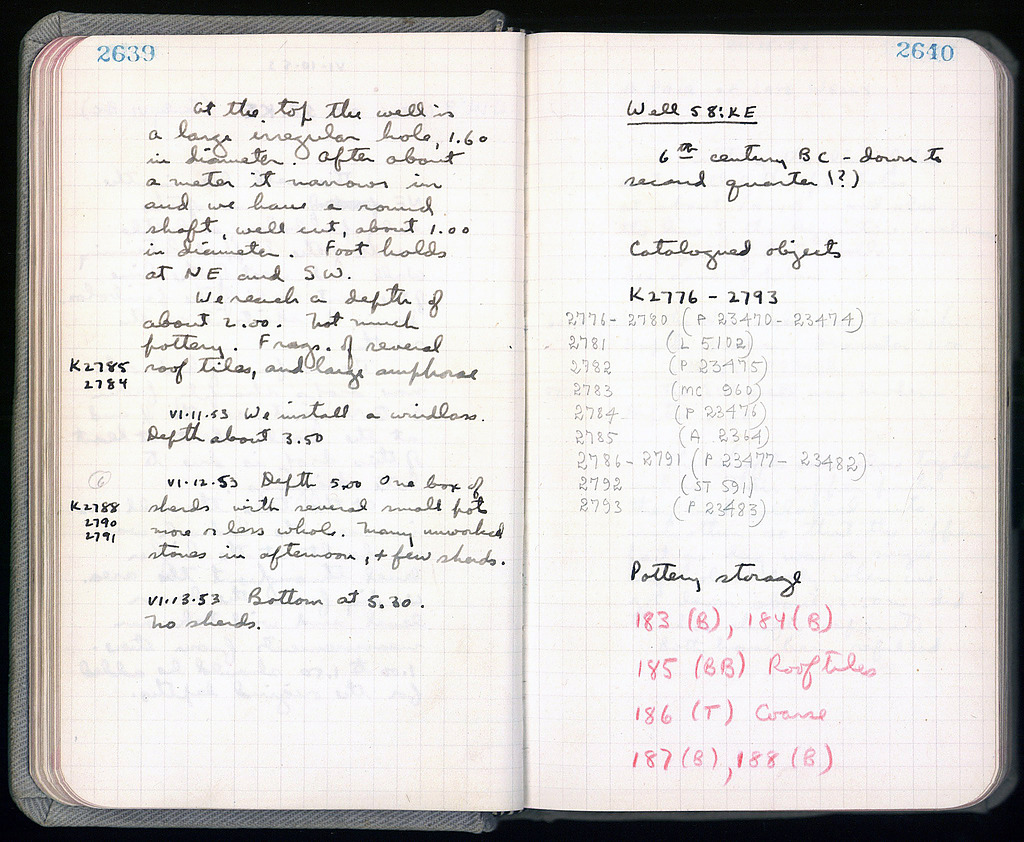 2639
At the top the well is
a large irregular hole, 1.60
in diameter. After about
a meter it narrows in
and we have a round
shaft, well cut, about 1.00
in diameter. Foot holds
at NE and SW.
We reach a depth of
about 2.00. Not much
pottery. Frags. of several
K2785 roof tiles, and large amphorae
2784
VI.11.53 We install a windlass.
Depth about 3.50
6
VI.12.53 Depth 5.00 One box of
K2788 sherds with several small pots
2790
more or less whole. Many unworked
2791
stones in afternoon, + few sherds.
VI.13.53 Bottom at 5.30.
No sherds.
2640
Well 58:KE
6th century BC - down to
second quarter (?)
Catalogued objects
K2776 - 2793
2776 - 2780 (P 23470 - 23474)
2781 (L 5102)
2782 (P 23475)
2783 (MC 960)
2784 (P 23476)
2785 (A 2364)
2786 - 2791 (P 23477 - 23482)
2792 (ST 591)
2793 (P 23483)
Pottery storage
183 (B), 184 (B)
185 (BB) Rooftiles
186 (T) Coarse
187 (B), 188 (B)